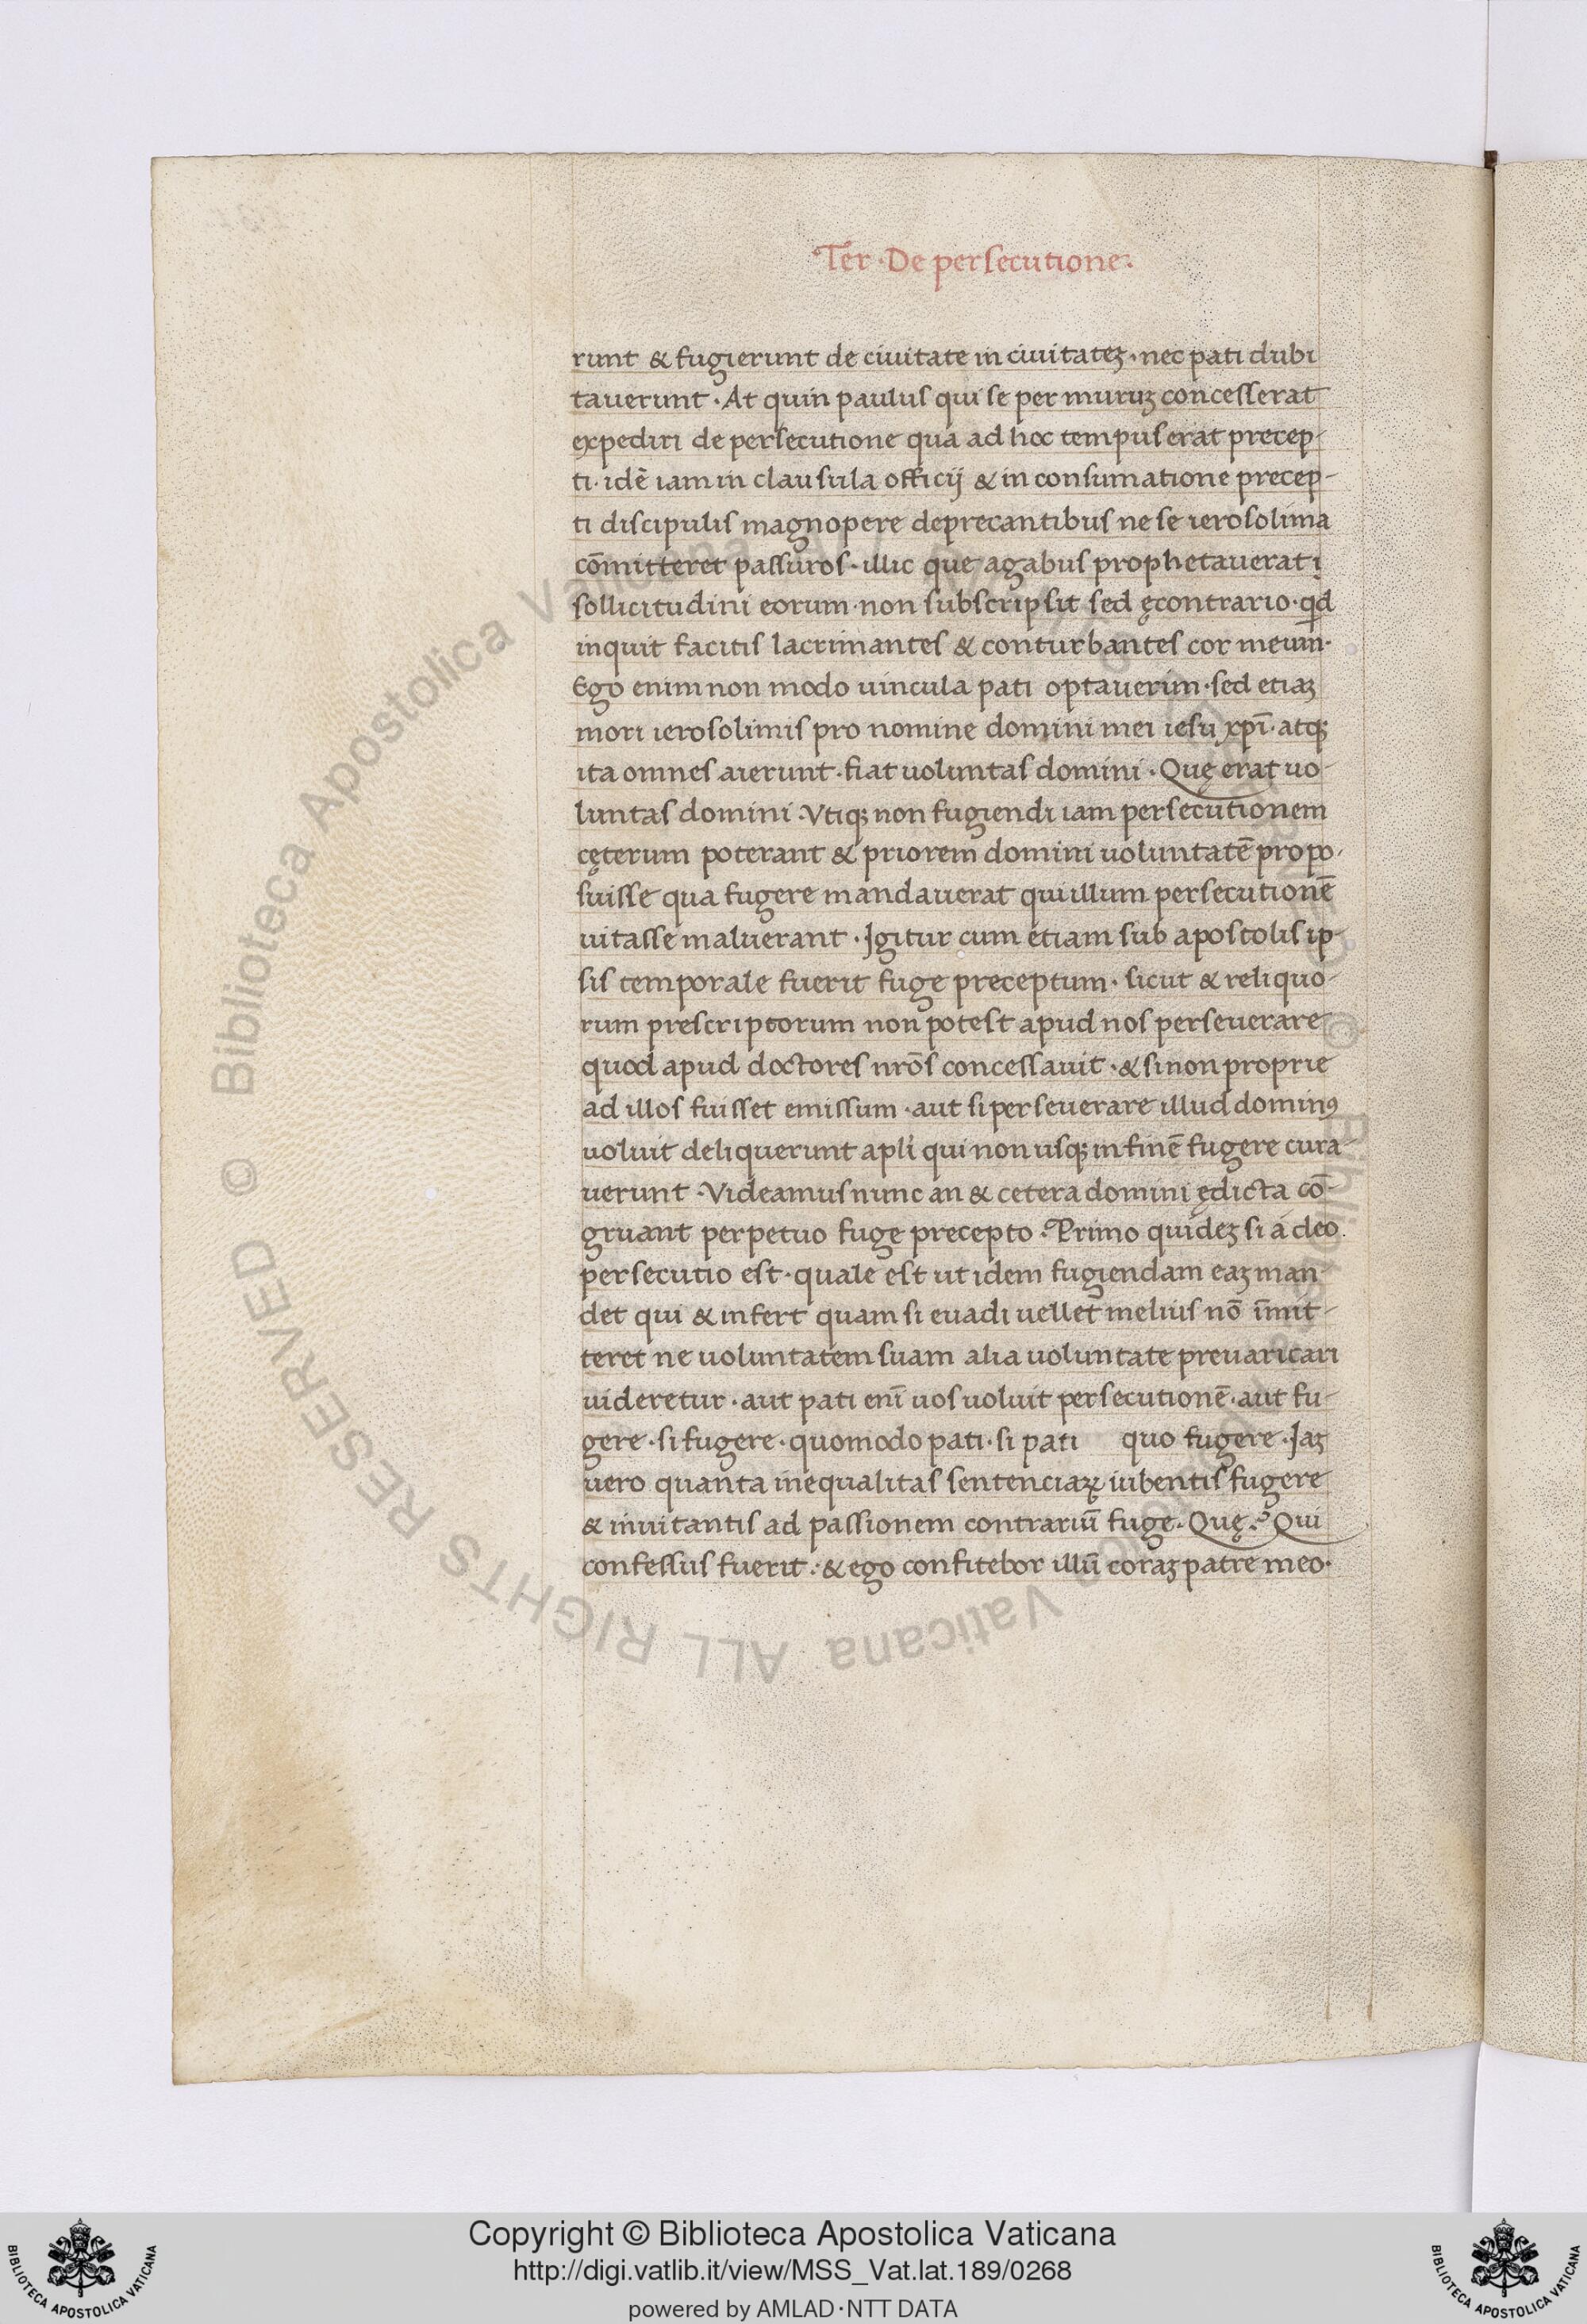 Ter · De persecutione ·
runt & fugierunt de ciuitate in ciuitateꝫ · nec pati dubi
tauerunt · At quin paulus qui se per muruꝫ concesserat
expediri de persecutione qua ad hoc tempus erat precep-
ti · idē iam in clausula officij & in consumatione precep-
ti discipulis magnopere deprecantibus ne se ierosolima
cōmitteret passuros · illic que agabus prophetauerat ị
sollicitudini eorum · non subscripsit sed ęcontrario · qd
inquit facitis lacrimantes & conturbantes cor meum ·
Ego enim non modo uincula pati optauerim · sed etiaꝫ
mori ierosolimis pro nomine domini mei iesu xp̄i · atqꝫ
ita omnes aierunt · fiat uoluntas domini · Quę erat uo-
luntas domini · Vtiqꝫ non fugiendi iam persecutionem
cęterum poterant & priorem domini uoluntatē propo-
suisse qua fugere mandauerat qui illum persecutionē
uitasse maluerant · Igitur cum etiam sub apostolis ip-
sis temporale fuerit fuge preceptum · sicut & reliquo-
rum prescriptorum non potest apud nos perseuerare
quod apud doctores nrōs concessauit · & si non proprie
ad illos fuisset emissum · aut si perseuerare illud dominꝰ
uoluit deliquerunt apl̄i qui non usqꝫ in finē fugere cura-
uerunt · Videamus nunc an & cetera domini ędicta cō-
gruant perpetuo fuge precepto · Primo quideꝫ si a deo
persecutio est · quale est ut idem fugiendam eaꝫ man-
det qui & infert quam si euadi uellet melius nō īmit-
teret ne uoluntatem suam alia uoluntate preuaricari
uideretur · aut pati enī uos uoluit persecutionē · aut fu-
gere · si fugere · quomodo pati · si pati quo fugere · Iaꝫ
uero quanta inequalitas sentenciaꝝ iubentis fugere
& inuitantis ad passionem contrariū fuge · Quę? Qui
confessus fuerit · & ego confitebor illū coraꝫ patre meo ·
© Biblioteca Apostolica Vaticana ALL RIGHTS RESERVED
Copyright © Biblioteca Apostolica Vaticana
http://digi.vatlib.it/view/MSS_Vat.lat.189/0268
powered by AMLAD · NTT DATA
BIBLIOTECA APOSTOLICA VATICANA
BIBLIOTECA APOSTOLICA VATICANA